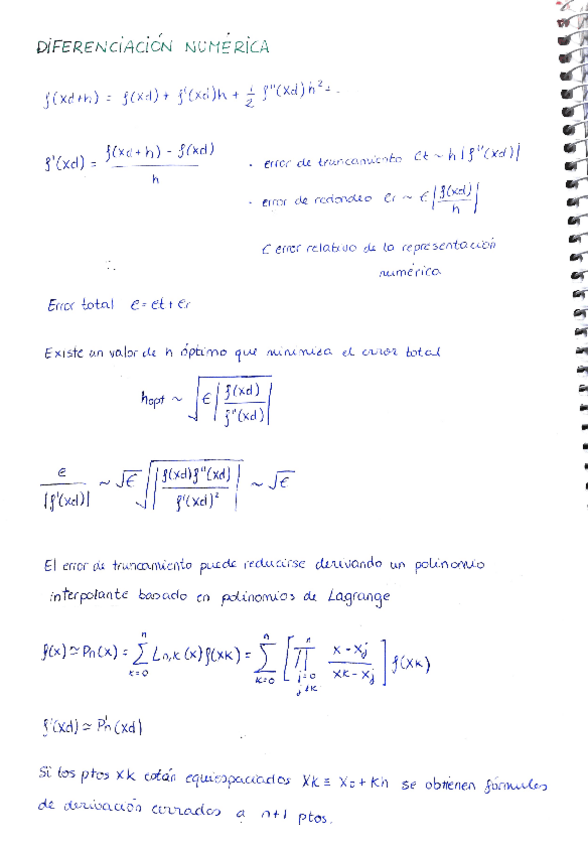 DIFERENCIACIÓN NUMÉRICA
f(xd+h) = f(xd) + f'(xd)h + 1/2 f''(xd)h² + ..
f'(xd) = (f(xd+h) - f(xd)) / h
· error de truncamiento et ~ h|f''(xd)|
· error de redondeo er ~ ϵ|f(xd)/h|
ϵ error relativo de la representación
numérica
∴
Error total e = et + er
Existe un valor de h óptimo que minimiza el error total
hopt ~ √(ϵ|f(xd)/f''(xd)|)
e/|f'(xd)| ~ √ϵ √(|f(xd)f''(xd)/f'(xd)²|) ~ √ϵ
El error de truncamiento puede reducirse derivando un polinomio
interpolante basado en polinomios de Lagrange
f(x) ≃ Pn(x) = Σ_{k=0}^{n} Ln,k(x)f(xk) = Σ_{k=0}^{n} [∏_{j=0, j≠k}^{n} (x-xj)/(xk-xj)] f(xk)
f'(xd) ≃ P'n(xd)
Si los ptos xk están equiespaciados xk ≡ x0 + kh se obtienen fórmulas
de derivación cerradas a n+1 ptos.